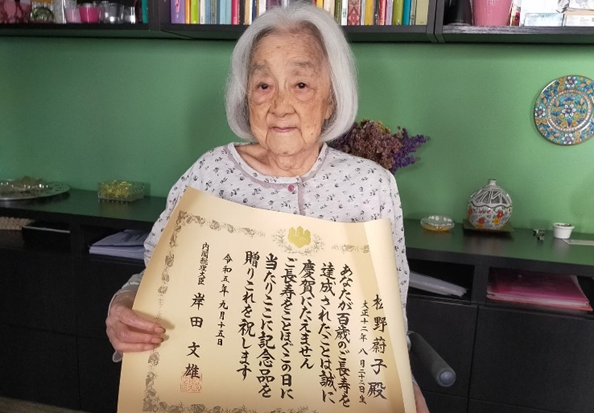 松野蔚子殿
大正十二年八月二十三日生
あなたが百歳のご長寿を
達成されたことは誠に
慶賀にたえません
ご長寿をことほぐこの日に
当たりここに記念品を
贈りこれを祝します
令和五年九月十五日
内閣総理大臣 岸田文雄